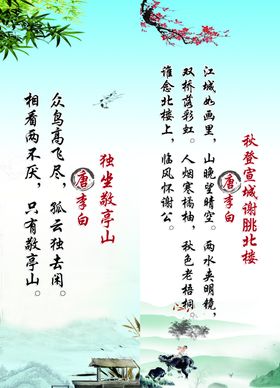 秋登宣城谢朓北楼
唐李白
江城如画里，山晚望晴空。两水夹明镜，
双桥落彩虹。人烟寒橘柚，秋色老梧桐。
谁念北楼上，临风怀谢公。
独坐敬亭山
唐李白
众鸟高飞尽，孤云独去闲。
相看两不厌，只有敬亭山。